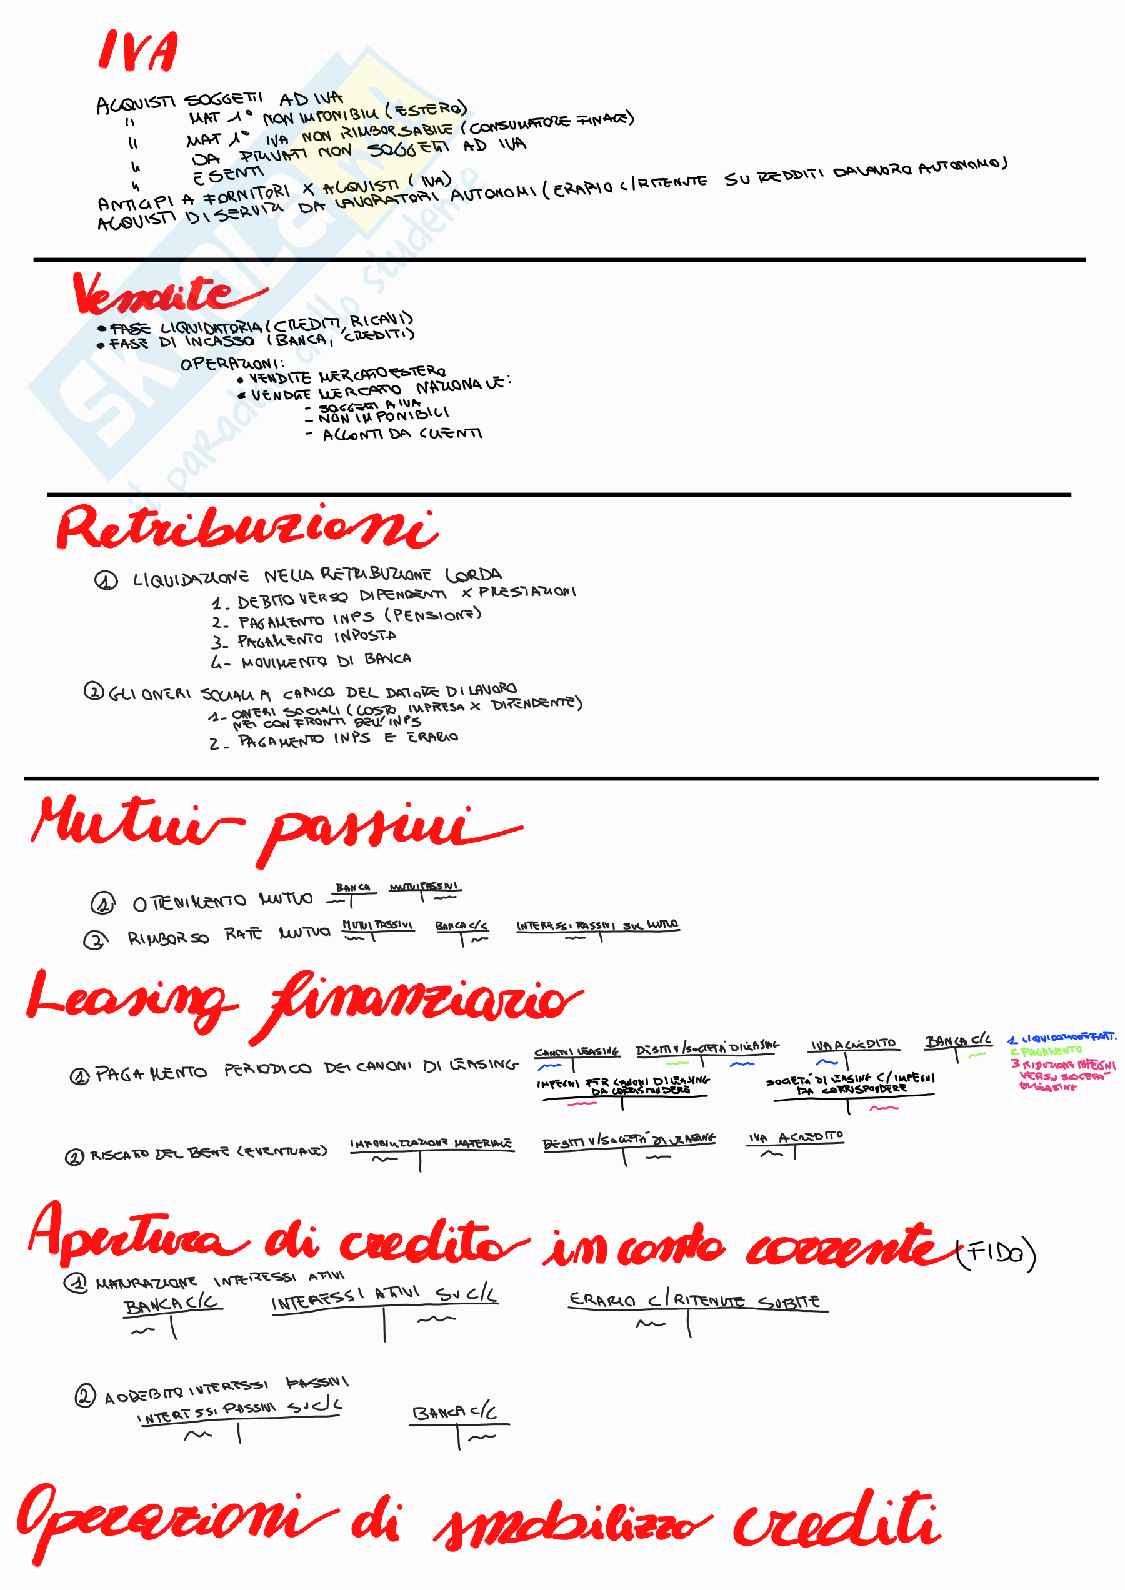 IVA
ACQUISTI SOGGETTI AD IVA
" MAT 1° NON IMPONIBILI (ESTERO)
" MAT 1° IVA NON RIMBORSABILE (CONSUMATORE FINALE)
" DA PRIVATI NON SOGGETTI AD IVA
" ESENTI
ANTICIPI A FORNITORI X ACQUISTI (IVA)
ACQUISTI DI SERVIZI DA LAVORATORI AUTONOMI (ERARIO C/RITENUTE SU REDDITI DA LAVORO AUTONOMO)
Vendite
• FASE LIQUIDATORIA (CREDITI, RICAVI)
• FASE DI INCASSO (BANCA, CREDITI)
OPERAZIONI:
• VENDITE MERCATO ESTERO
• VENDITE MERCATO NAZIONALE:
- SOGGETTI A IVA
- NON IMPONIBILI
- ACCONTI DA CLIENTI
Retribuzioni
1 LIQUIDAZIONE NELLA RETRIBUZIONE LORDA
1- DEBITO VERSO DIPENDENTI X PRESTAZIONI
2- PAGAMENTO INPS (PENSIONE)
3- PAGAMENTO INPOSTA
4- MOVIMENTO DI BANCA
2 GLI ONERI SOCIALI A CARICO DEL DATORE DI LAVORO
1- ONERI SOCIALI (COSTO IMPRESA X DIPENDENTE)
NEI CONFRONTI DELL'INPS
2- PAGAMENTO INPS E ERARIO
Mutui passivi
1 OTTENIMENTO MUTUO BANCA MUTUI PASSIVI
2 RIMBORSO RATE MUTUO MUTUI PASSIVI BANCA C/C INTERESSI PASSIVI SUL MUTUO
Leasing finanziario
1 PAGAMENTO PERIODICO DEI CANONI DI LEASING CANONI LEASING DEBITI V/SOCIETÀ DI LEASING IVA A CREDITO BANCA C/C 1 LIQUIDAZIONE FATT.
2 PAGAMENTO
3 RIDUZIONE IMPEGNI
VERSO SOCIETÀ
DI LEASING
IMPEGNI PER CANONI DI LEASING
DA CORRISPONDERE
SOCIETÀ DI LEASING C/IMPEGNI
DA CORRISPONDERE
2 RISCATTO DEL BENE (EVENTUALE) IMMOBILIZZAZIONE MATERIALE DEBITI V/SOCIETÀ DI LEASING IVA A CREDITO
Apertura di credito in conto corrente (FIDO)
1 MATURAZIONE INTERESSI ATTIVI
BANCA C/C INTERESSI ATTIVI SU C/C ERARIO C/RITENUTE SUBITE
2 ADDEBITO INTERESSI PASSIVI
INTERESSI PASSIVI SU C/C BANCA C/C
Operazioni di smobilizzo crediti